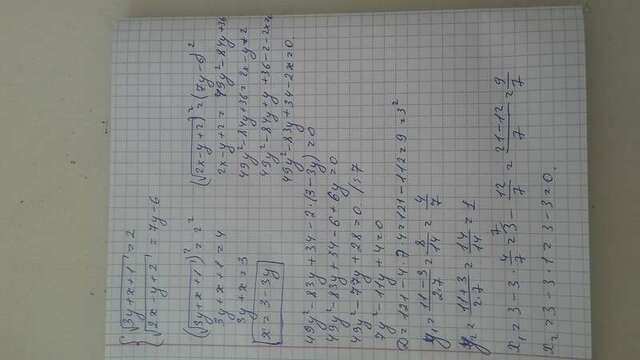 { √(3y+x+1) = 2
√(2x-y+2) = 7y-6
(√(3y+x+1))² = 2²
3y+x+1 = 4
3y+x = 3
x = 3-3y
(√(2x-y+2))² = (7y-6)²
2x-y+2 = 49y²-84y+36
49y²-84y+36 = 2x-y+2
49y²-84y+y+36-2-2x=0
49y²-83y+34-2x=0.
49y²-83y+34-2·(3-3y)=0
49y²-83y+34-6+6y=0
49y²-77y+28=0 /:7
7y²-11y+4=0
D= 121-4·7·4=121-112=9=3²
y₁= (11-3)/(2·7) = 8/14 = 4/7
y₂= (11+3)/(2·7) = 14/14 = 1
x₁ = 3-3·4/7 = 3⁷ - 12/7 = (21-12)/7 = 9/7
x₂ = 3-3·1 = 3-3=0.